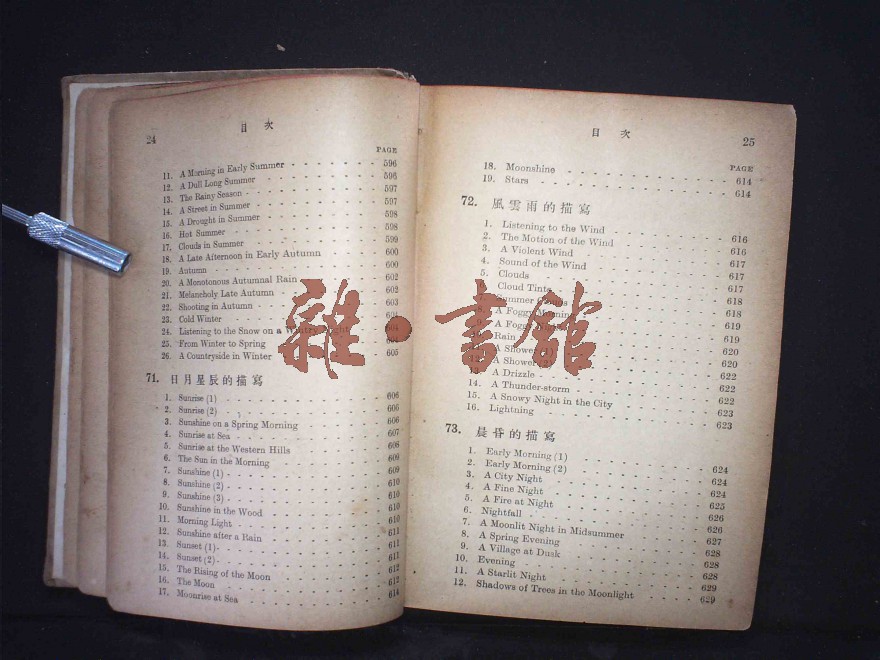 24
目 次
PAGE
11. A Morning in Early Summer 596
12. A Dull Long Summer 596
13. The Rainy Season 597
14. A Street in Summer 597
15. A Drought in Summer 598
16. Hot Summer 598
17. Clouds in Summer 599
18. A Late Afternoon in Early Autumn 600
19. Autumn 600
20. A Monotonous Autumnal Rain 602
21. Melancholy Late Autumn 602
22. Shooting in Autumn 603
23. Cold Winter 604
24. Listening to the Snow on a Wintry Night 604
25. From Winter to Spring 604
26. A Countryside in Winter 605
71. 日月星辰的描寫
1. Sunrise (1) 606
2. Sunrise (2) 606
3. Sunshine on a Spring Morning 606
4. Sunrise at Sea 607
5. Sunrise at the Western Hills 608
6. The Sun in the Morning 609
7. Sunshine (1) 609
8. Sunshine (2) 610
9. Sunshine (3) 610
10. Sunshine in the Wood 610
11. Morning Light 610
12. Sunshine after a Rain 611
13. Sunset (1) 611
14. Sunset (2) 611
15. The Rising of the Moon 612
16. The Moon 613
17. Moonrise at Sea 614
目 次
25
PAGE
18. Moonshine 614
19. Stars 614
72. 風雲雨的描寫
1. Listening to the Wind 616
2. The Motion of the Wind 616
3. A Violent Wind 617
4. Sound of the Wind 617
5. Clouds 617
Cloud Tints 618
7. Summer Clouds 618
8. A Foggy Morning 619
9. A Foggy 619
Rain 620
A Shower (1) 620
A Shower (2) 622
13. A Drizzle 622
14. A Thunder-storm 622
15. A Snowy Night in the City 623
16. Lightning 623
73. 晨昏的描寫
1. Early Morning (1) 624
2. Early Morning (2) 624
3. A City Night 624
4. A Fine Night 625
5. A Fire at Night 626
6. Nightfall 626
7. A Moonlit Night in Midsummer 627
8. A Spring Evening 628
9. A Village at Dusk 628
10. Evening 628
11. A Starlit Night 629
12. Shadows of Trees in the Moonlight 629
雜·書館